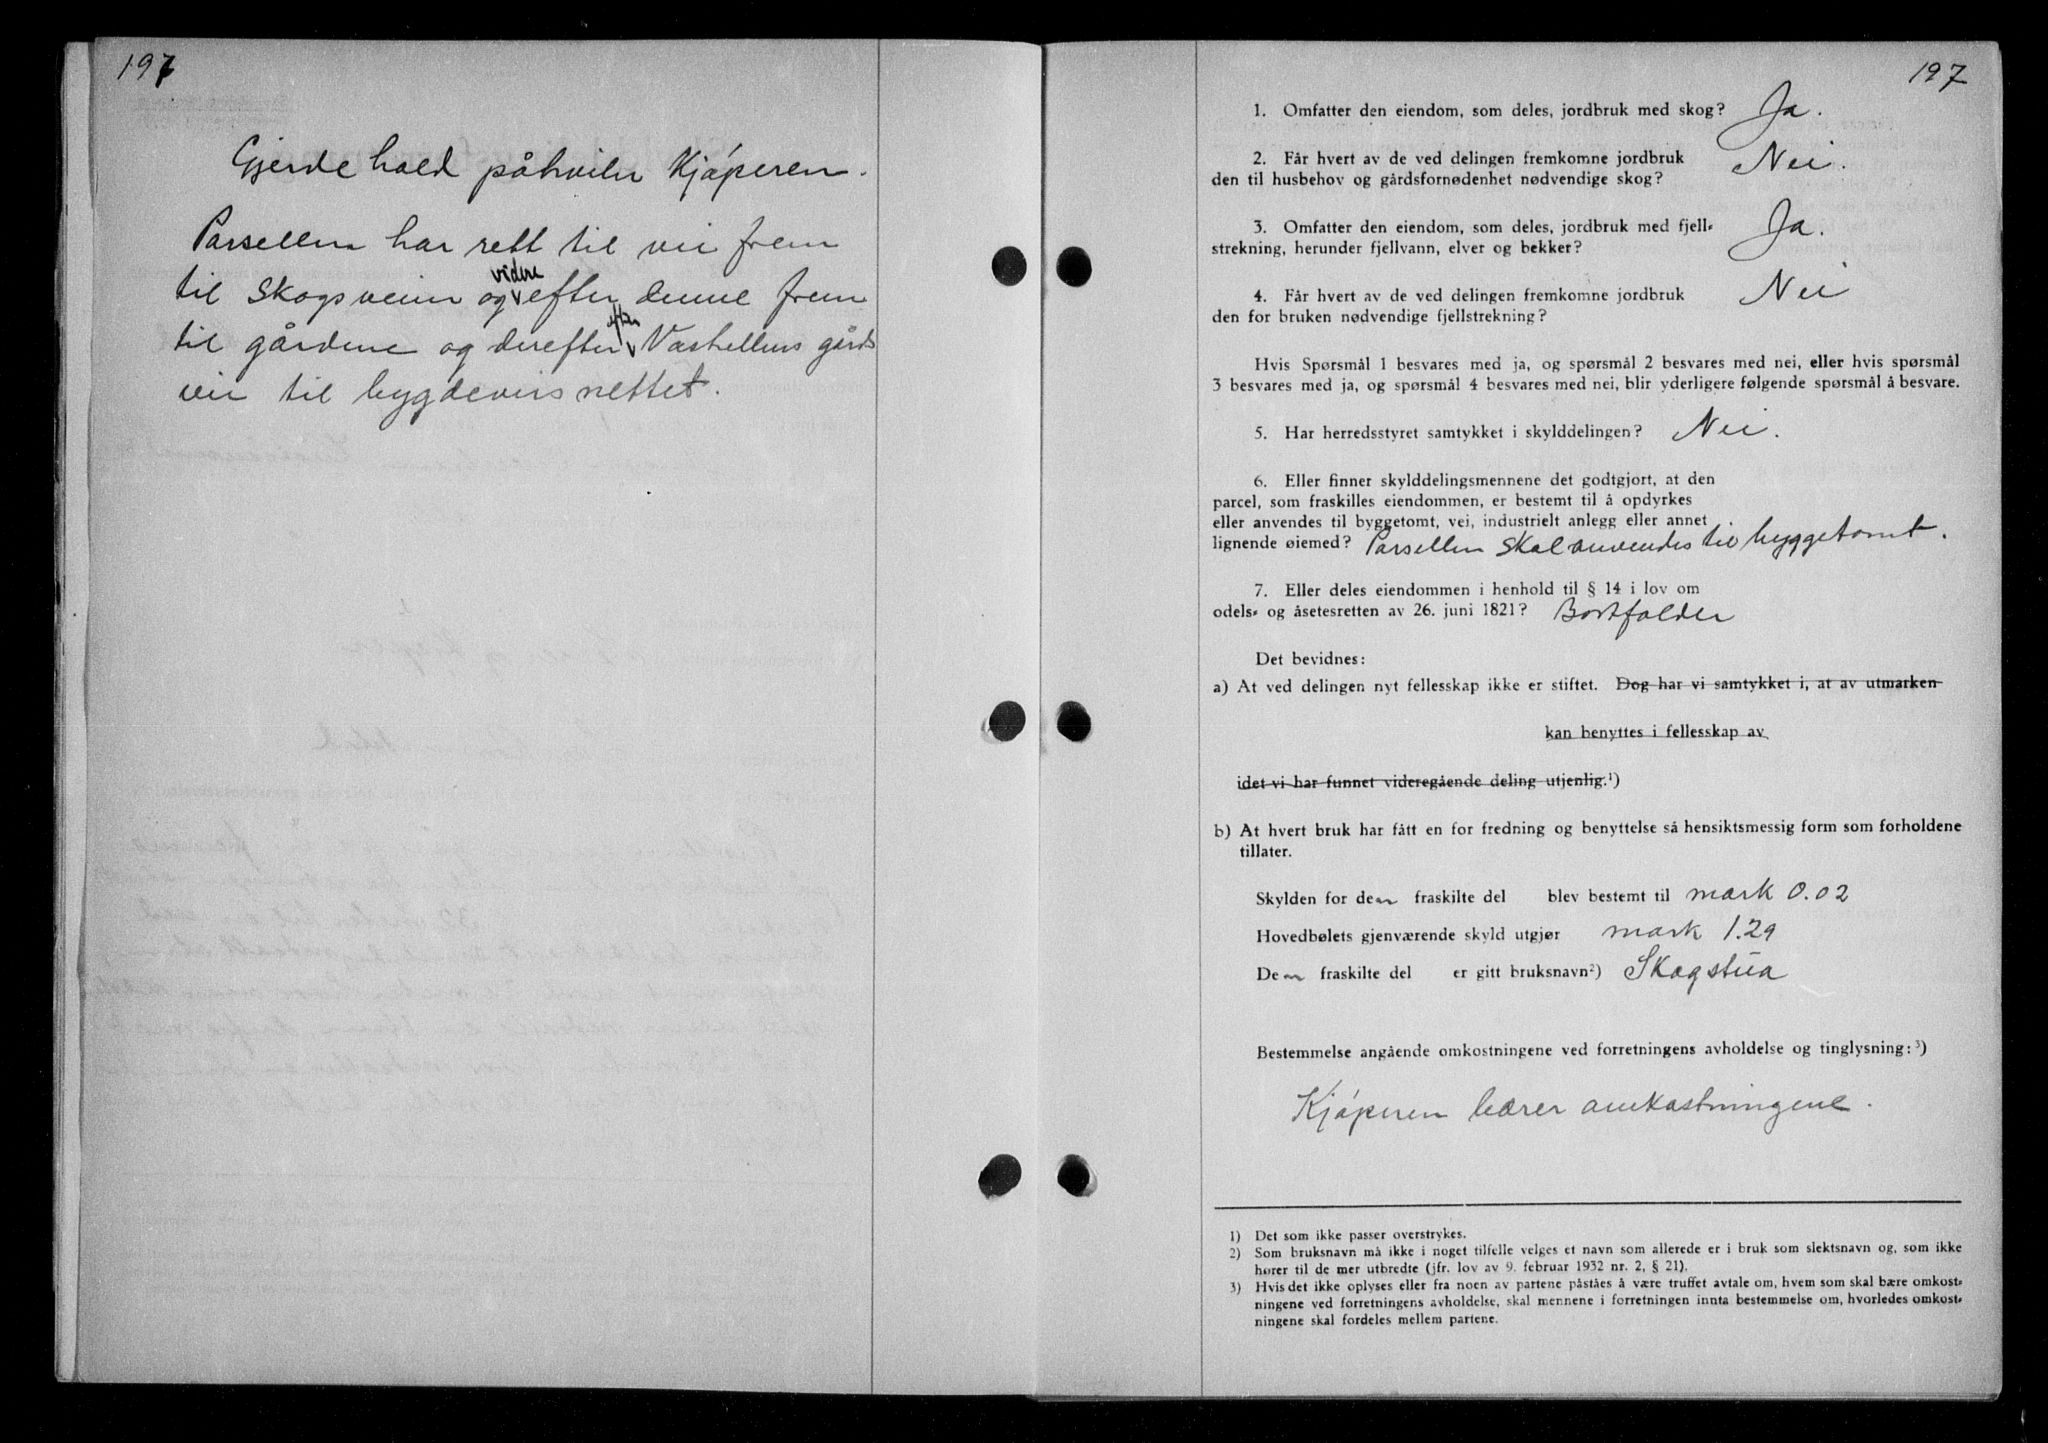 197
Gjerdehold påhviler Kjøperen.
Parsellen har rett til vei frem
videre
til Skogsveien og efter denne frem
efter
til gårdene og derefter Vestellens gårds
vei til bygdeveisnettet.
197
1. Omfatter den eiendom, som deles, jordbruk med skog? Ja.
2. Får hvert av de ved delingen fremkomne jordbruk Nei.
den til husbehov og gårdsfornødenhet nødvendige skog?
3. Omfatter den eiendom, som deles, jordbruk med fjell- Ja.
strekning, herunder fjellvann, elver og bekker?
4. Får hvert av de ved delingen fremkomne jordbruk Nei
den for bruken nødvendige fjellstrekning?
Hvis Spørsmål 1 besvares med ja, og spørsmål 2 besvares med nei, eller hvis spørsmål
3 besvares med ja, og spørsmål 4 besvares med nei, blir yderligere følgende spørsmål å besvare.
5. Har herredsstyret samtykket i skylddelingen? Nei.
6. Eller finner skylddelingsmennene det godtgjort, at den
parcel, som fraskilles eiendommen, er bestemt til å opdyrkes
eller anvendes til byggetomt, vei, industrielt anlegg eller annet
lignende øiemed? Parsellen skal anvendes til byggetomt.
7. Eller deles eiendommen i henhold til § 14 i lov om
odels- og åsetesretten av 26. juni 1821? Bortfalder
Det bevidnes:
a) At ved delingen nyt fellesskap ikke er stiftet. Dog har vi samtykket i, at av utmarken
kan benyttes i fellesskap av
idet vi har funnet videregående deling utjenlig.¹)
b) At hvert bruk har fått en for fredning og benyttelse så hensiktsmessig form som forholdene
tillater.
Skylden for den fraskilte del blev bestemt til mark 0.02
Hovedbølets gjenværende skyld utgjør mark 1.29
Den fraskilte del er gitt bruksnavn²) Skogstua
Bestemmelse angående omkostningene ved forretningens avholdelse og tinglysning:³)
Kjøperen bærer omkostningene.
1) Det som ikke passer overstrykes.
2) Som bruksnavn må ikke i noget tilfelle velges et navn som allerede er i bruk som slektsnavn og, som ikke
hører til de mer utbredte (jfr. lov av 9. februar 1932 nr. 2, § 21).
3) Hvis det ikke oplyses eller fra noen av partene påståes å være truffet avtale om, hvem som skal bære omkost-
ningene ved forretningens avholdelse, skal mennene i forretningen innta bestemmelse om, hvorledes omkost-
ningene skal fordeles mellem partene.